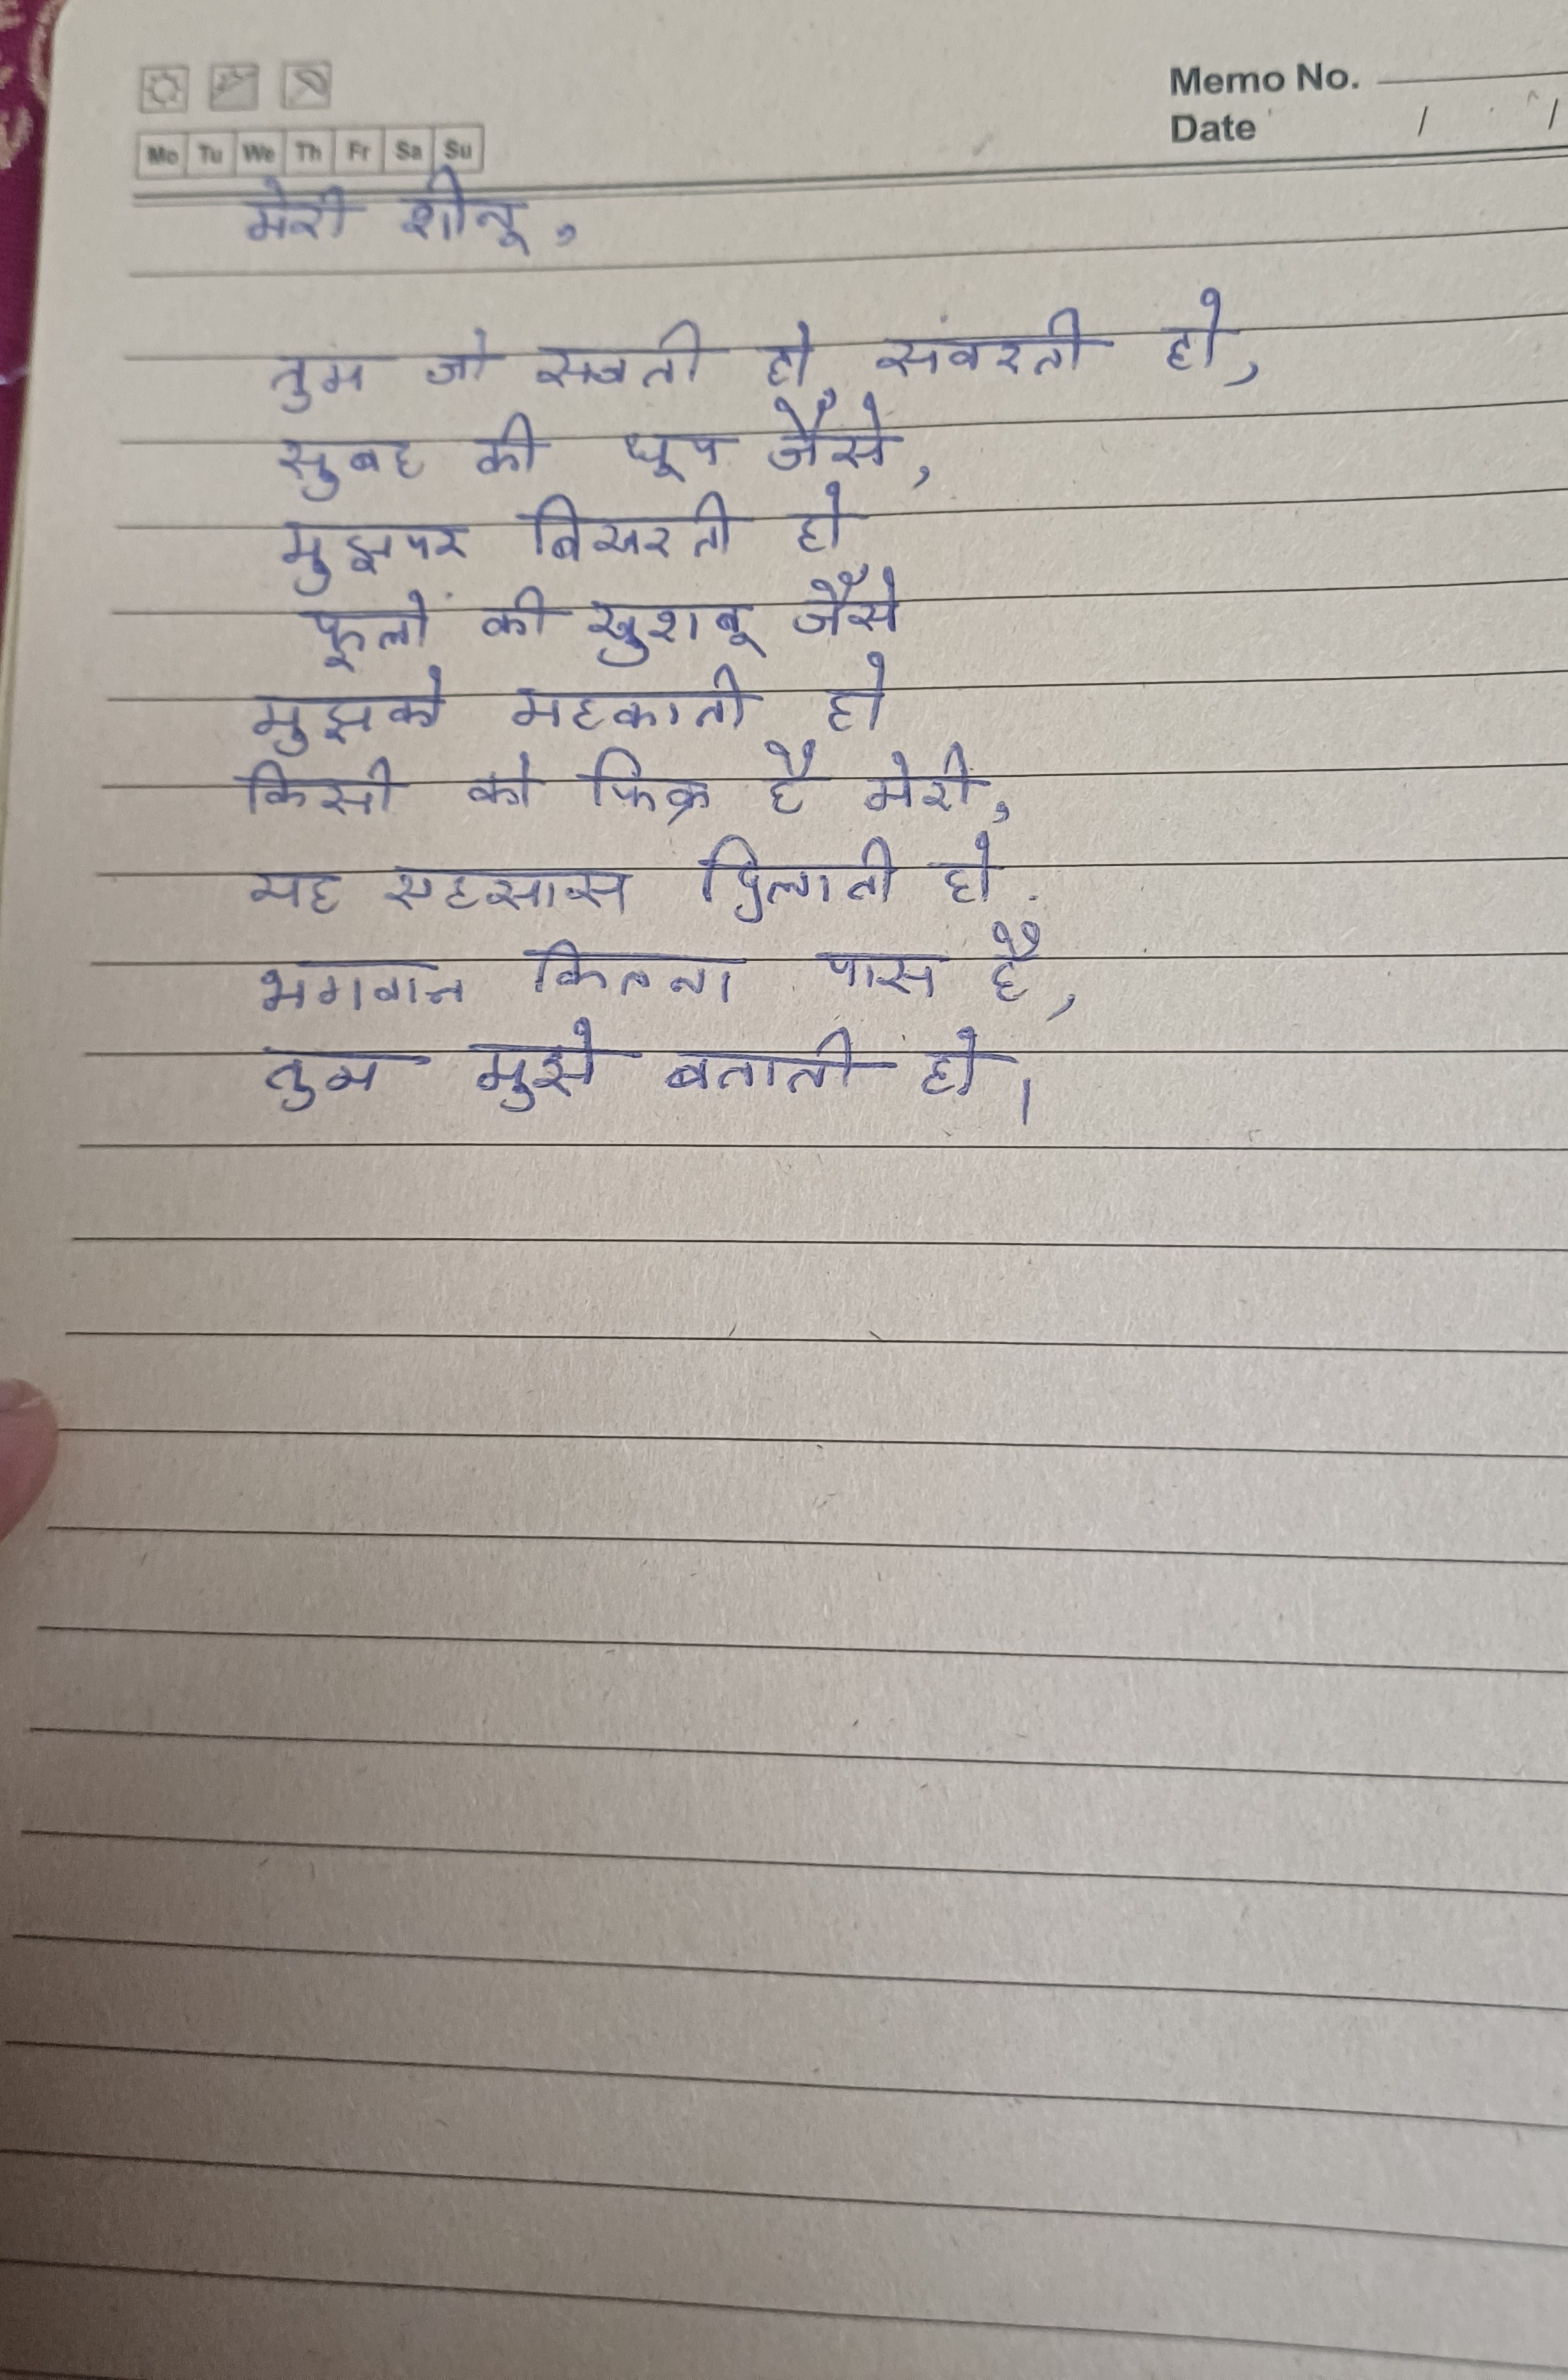 Memo No.
Date / /
Mo Tu We Th Fr Sa Su
मेरी शीनू,
तुम जो सजती हो, संवरती हो,
सुबह की धूप जैसे,
मुझपर बिखरती हो
फूलों की खुशबू जैसे
मुझको महकाती हो
किसी को फिक्र है मेरी,
यह एहसास दिलाती हो.
भगवान कितना पास है,
तुम मुझे बताती हो।